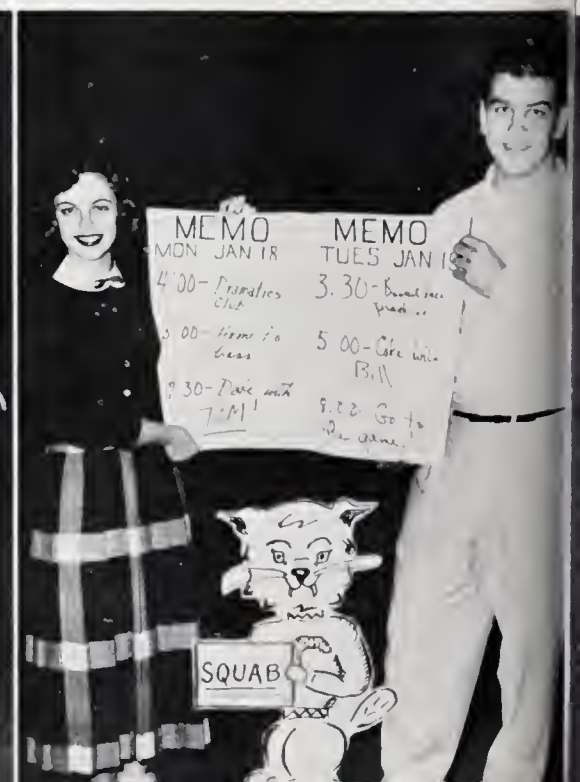 MEMO
MON JAN 18
4:00- Dramatics
Club
00-
30- Date with
MEMO
TUES JAN
3.30-
5 00- Coke with
Bill
Go to
game!
SQUAB